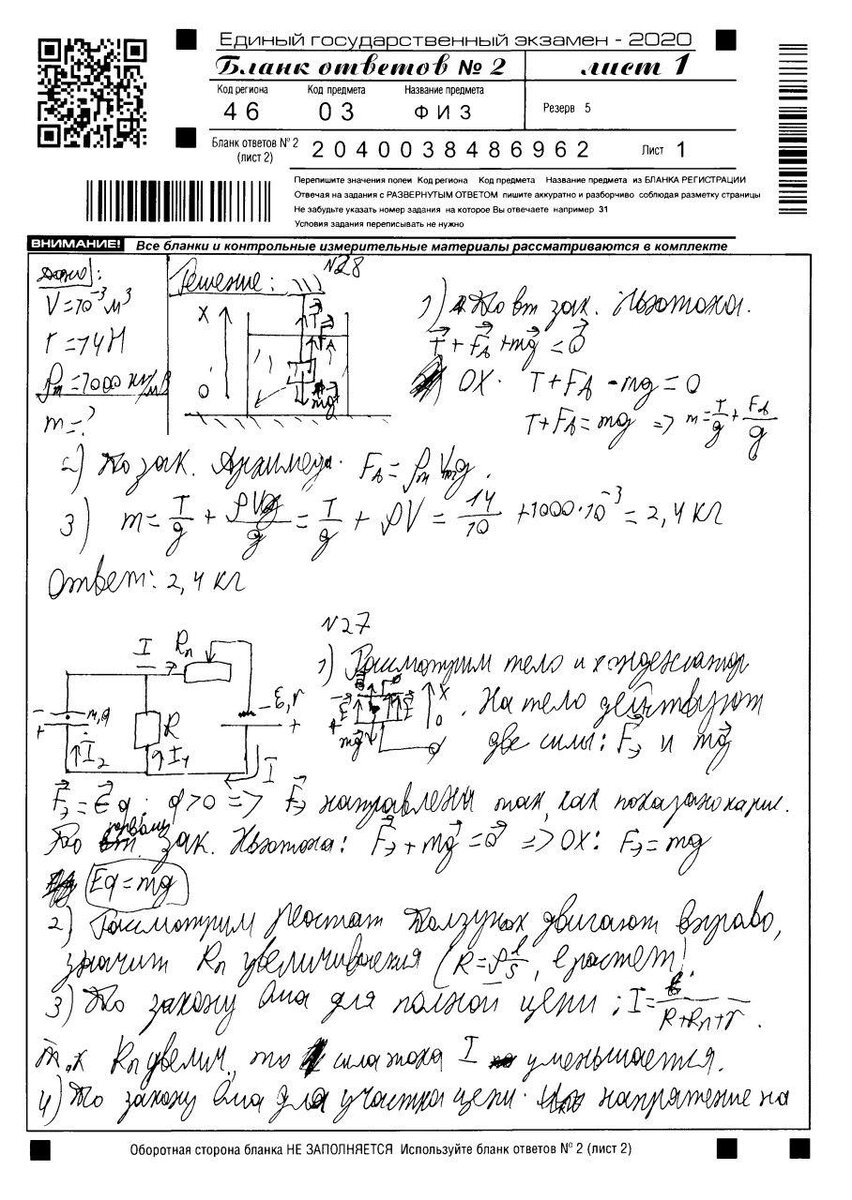 Единый государственный экзамен - 2020
Бланк ответов № 2 лист 1
Код региона Код предмета Название предмета
46 03 ФИЗ Резерв 5
Бланк ответов № 2 (лист 2) 2040038486962 Лист 1
Перепишите значения полей Код региона Код предмета Название предмета из БЛАНКА РЕГИСТРАЦИИ
Отвечая на задания с РАЗВЕРНУТЫМ ОТВЕТОМ пишите аккуратно и разборчиво соблюдая разметку страницы
Не забудьте указать номер задания на которое Вы отвечаете например 31
Условия задания переписывать не нужно
ВНИМАНИЕ! Все бланки и контрольные измерительные материалы рассматриваются в комплекте
N28
Дано:
V=10⁻³ м³
T=14H
m=?
Решение:
X
O
T
FA
mg
1) По вт зак. Ньютона.
T + FA + mg = 0
OX. T+FA - mg=0
T+FA=mg => m= T/g + FA/g
2) По зак. Архимеда. FA = ρж Vg.
3) m= T/g + ρVg/g = T/g + ρV = 14/10 + 1000·10⁻³ = 2,4 кг
Ответ: 2,4 кг
N27
I Rп
- m,q + R - ε,r +
I₂ I₁ I
1) Рассмотрим тело и конденсатор
. На тело действуют
две силы: Fэ и mg
Fэ = Eq. q>0 => Fэ направлены так, как показано на рис.
По первому зак. Ньютона: Fэ + mg = 0 => OX: Fэ = mg
Eq = mg
2) Рассмотрим реостат Ползунок двигают вправо,
значит Rп увеличивается (R=ρ l/S, l растет).
3) По закону Ома для полной цепи; I= ε/(R+Rп+r).
т.к Rп увелич., то сила тока I уменьшается.
4) По закону Ома для участка цепи. напряжение на
Оборотная сторона бланка НЕ ЗАПОЛНЯЕТСЯ Используйте бланк ответов № 2 (лист 2)